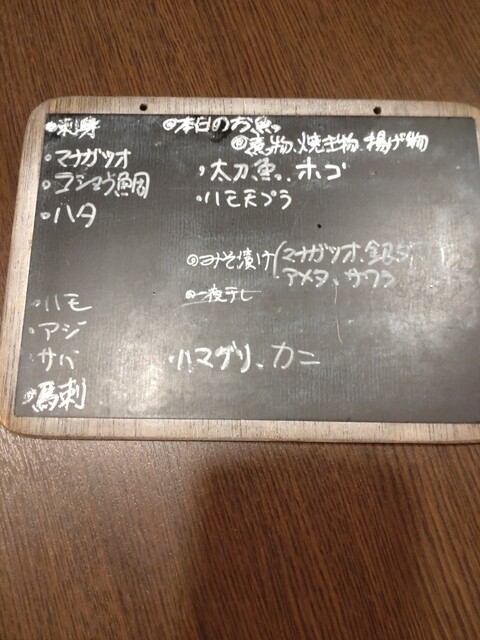 ◎刺身
・マナガツオ
・ラシマヅ鯛
・ハタ
・ハモ
・アジ
・サバ
◎馬刺
◎本日のお魚。
◎煮物、焼き物、揚げ物
・太刀魚、ホゴ
・ハモ天プラ
◎みそ漬け(マナガツオ、銀ダ
アメタ、サワラ
◎一夜干し
・ハマグリ、カニ